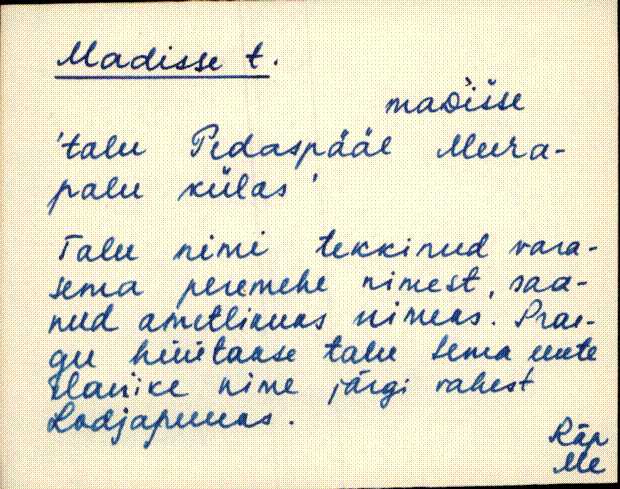 Madisse t.
maDi͕sse
'talu Pedaspääl Meera-
palu külas'
Talu nimi tekkinud vara-
sema peremehe nimest, saa-
nud ametlikuks nimeks. Prae-
gu hüütakse talu tema uute
elanike nime järgi vahest
Lodjapuuks.
Räp
Me